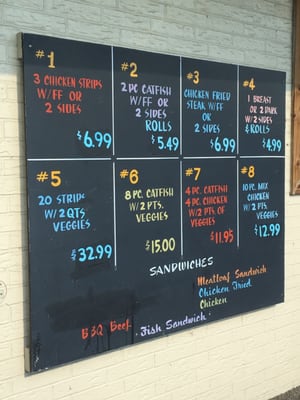 #1
3 CHICKEN STRIPS
W/FF OR
2 SIDES
$6.99
#2
2 PC CATFISH
W/FF OR
2 SIDES
ROLLS
$5.49
#3
CHICKEN FRIED
STEAK W/FF
OR
2 SIDES
$6.99
#4
1 BREAST
OR 2 DARK
W/2 SIDES
& ROLLS
$4.99
#5
20 STRIPS
W/2 QTS
VEGGIES
$32.99
#6
8 PC. CATFISH
W/2 PTS.
VEGGIES
$15.00
#7
4 PC. CATFISH
4 PC. CHICKEN
W/2 PTS. OF
VEGGIES
$11.95
#8
10 PC. MIX
CHICKEN
W/2 PTS.
VEGGIES
$12.99
SANDWICHES
Meatloaf Sandwich
Chicken Fried
Chicken
BBQ Beef
Fish Sandwich